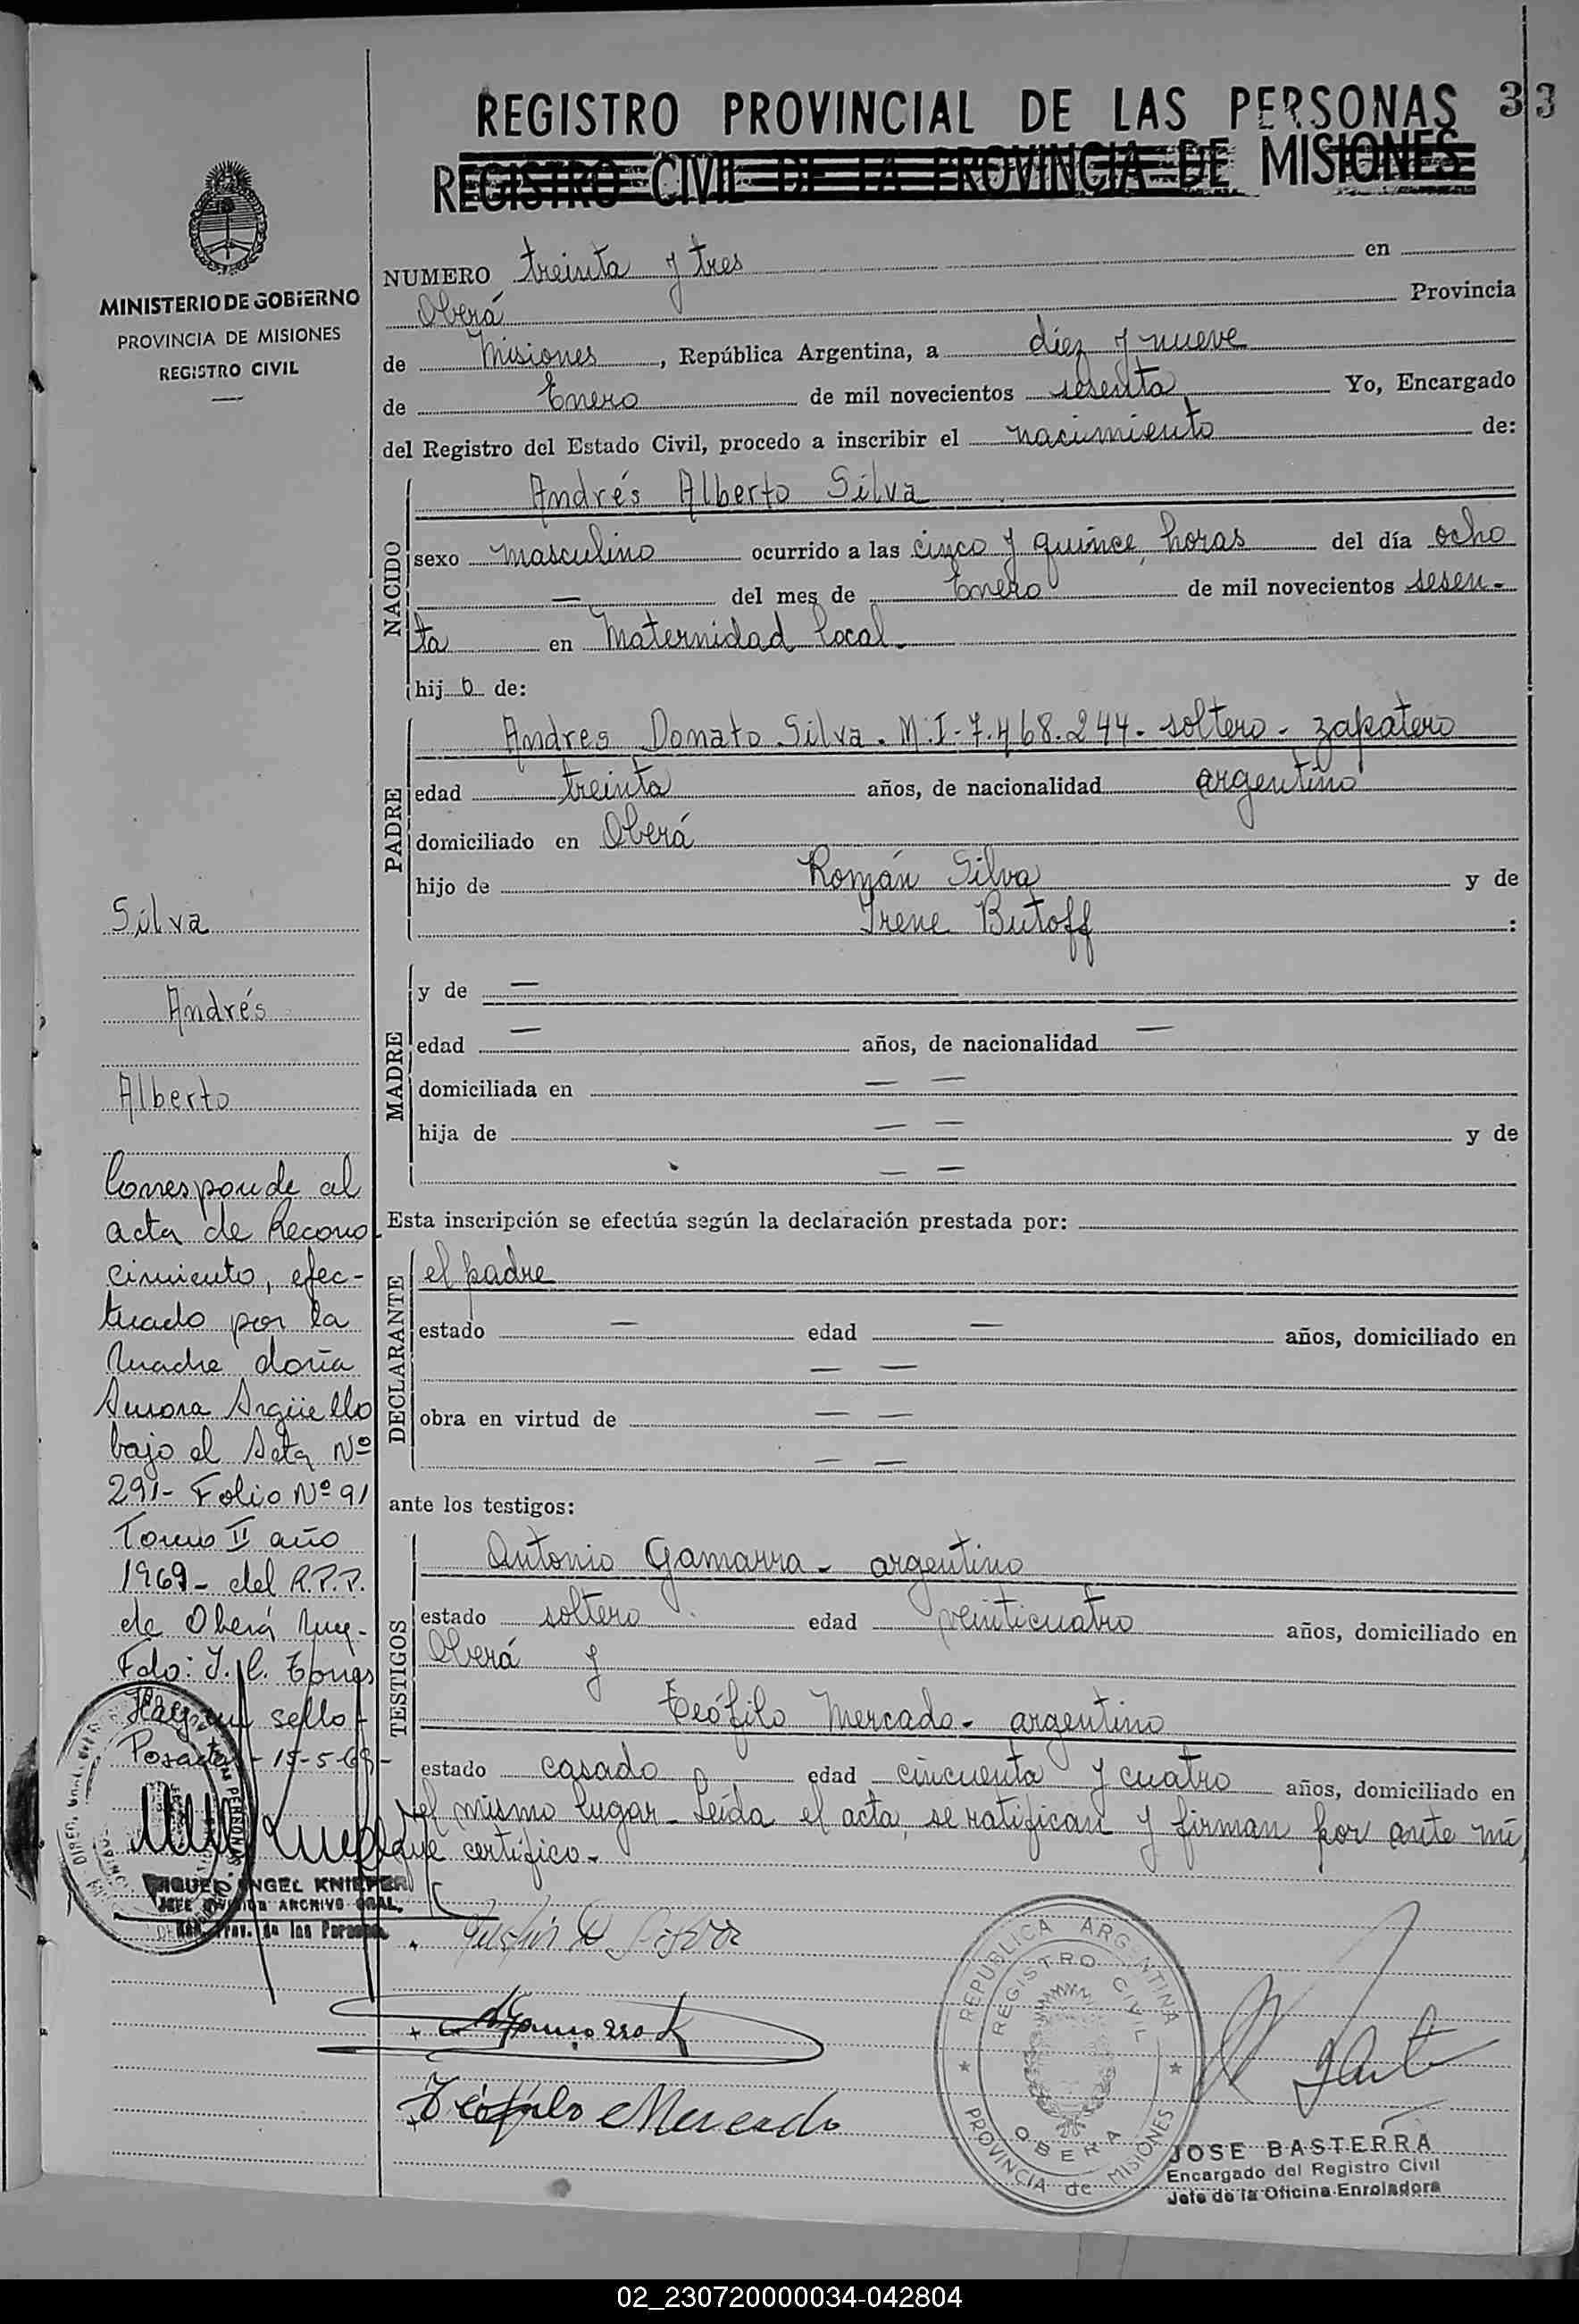 REGISTRO PROVINCIAL DE LAS PERSONAS 33
REGISTRO CIVIL DE LA PROVINCIA DE MISIONES
MINISTERIO DE GOBIERNO
PROVINCIA DE MISIONES
REGISTRO CIVIL
NUMERO treinta y tres en
Oberá Provincia
de Misiones, República Argentina, a diez y nueve
de Enero de mil novecientos sesenta Yo, Encargado
del Registro del Estado Civil, procedo a inscribir el nacimiento de:
NACIDO
Andrés Alberto Silva
sexo masculino ocurrido a las cinco y quince horas del día ocho
— del mes de Enero de mil novecientos sesen-
ta en Maternidad local.
hijo de:
PADRE
Andres Donato Silva. M.I-7.468.244- soltero - zapatero
edad treinta años, de nacionalidad argentino
domiciliado en Oberá
hijo de Román Silva y de
Irene Butoff :
MADRE
y de —
edad — años, de nacionalidad —
domiciliada en — —
hija de — — y de
— —
Esta inscripción se efectúa según la declaración prestada por:
DECLARANTE
el padre
estado — edad — años, domiciliado en
— —
obra en virtud de — —
— —
ante los testigos:
TESTIGOS
Antonio Gamarra - argentino
estado soltero edad veinticuatro años, domiciliado en
Oberá y
Teófilo Mercado - argentino
estado casado edad cincuenta y cuatro años, domiciliado en
el mismo lugar - Leída el acta, se ratifican y firman por ante mí,
que certifico.-
Teófilo Mercado
REPUBLICA ARGENTINA
REGISTRO CIVIL
OBERA
PROVINCIA de MISIONES
JOSE BASTERRA
Encargado del Registro Civil
Jefe de la Oficina Enroladora
Silva
Andrés
Alberto
Corresponde al
acta de Recono-
cimiento, efec-
tuado por la
Madre doña
Aurora Argüello
bajo el Acta Nº
291- Folio Nº 91
Tomo II año
1969- del R.P.P.
de Oberá
Fdo: J. C.
Hay un sello-
Posadas- 15-5-69-
MIGUEL ANGEL KNIEPER
JEFE DIVISION ARCHIVO GRAL.
Prov. de las Personas
02_230720000034-042804